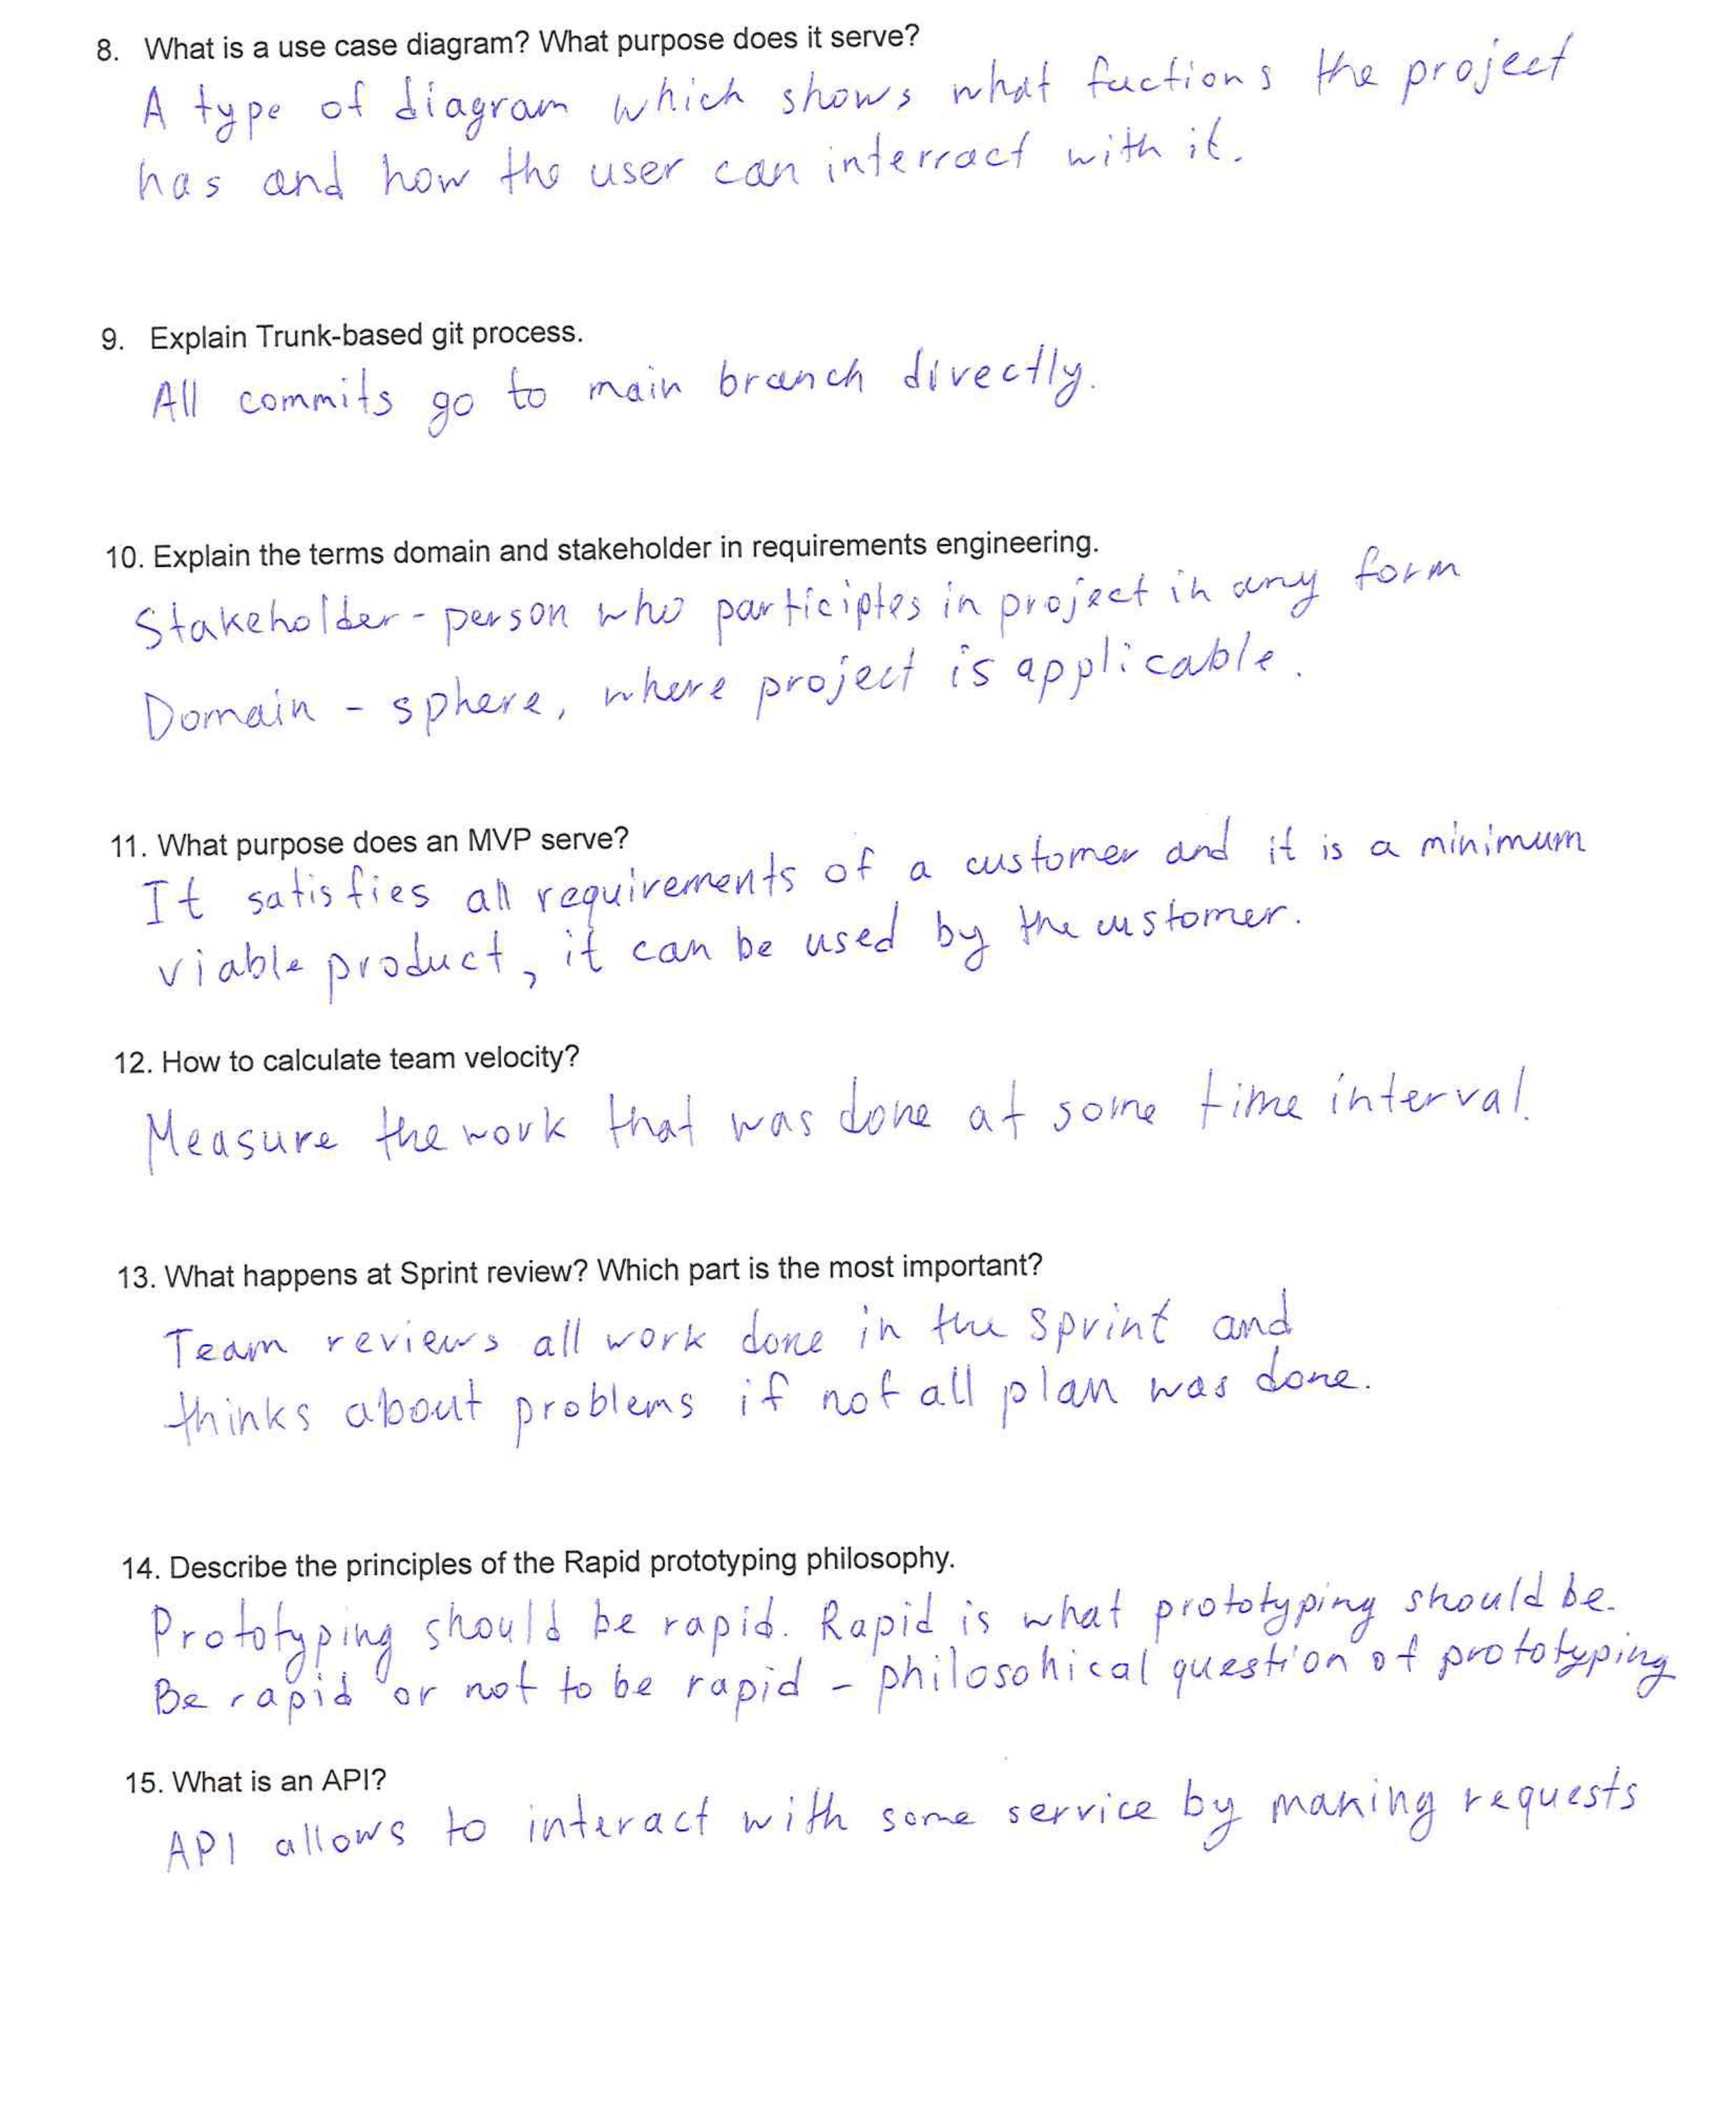 8. What is a use case diagram? What purpose does it serve?
A type of diagram which shows what fuctions the project
has and how the user can interract with it.
9. Explain Trunk-based git process.
All commits go to main branch directly.
10. Explain the terms domain and stakeholder in requirements engineering.
Stakeholder - person who participtes in project in any form
Domain - sphere, where project is applicable.
11. What purpose does an MVP serve?
It satisfies all requirements of a customer and it is a minimum
viable product, it can be used by the customer.
12. How to calculate team velocity?
Measure the work that was done at some time interval.
13. What happens at Sprint review? Which part is the most important?
Team reviews all work done in the sprint and
thinks about problems if not all plan was done.
14. Describe the principles of the Rapid prototyping philosophy.
Prototyping should be rapid. Rapid is what prototyping should be.
Be rapid or not to be rapid - philosohical question of prototyping
15. What is an API?
API allows to interact with some service by making requests